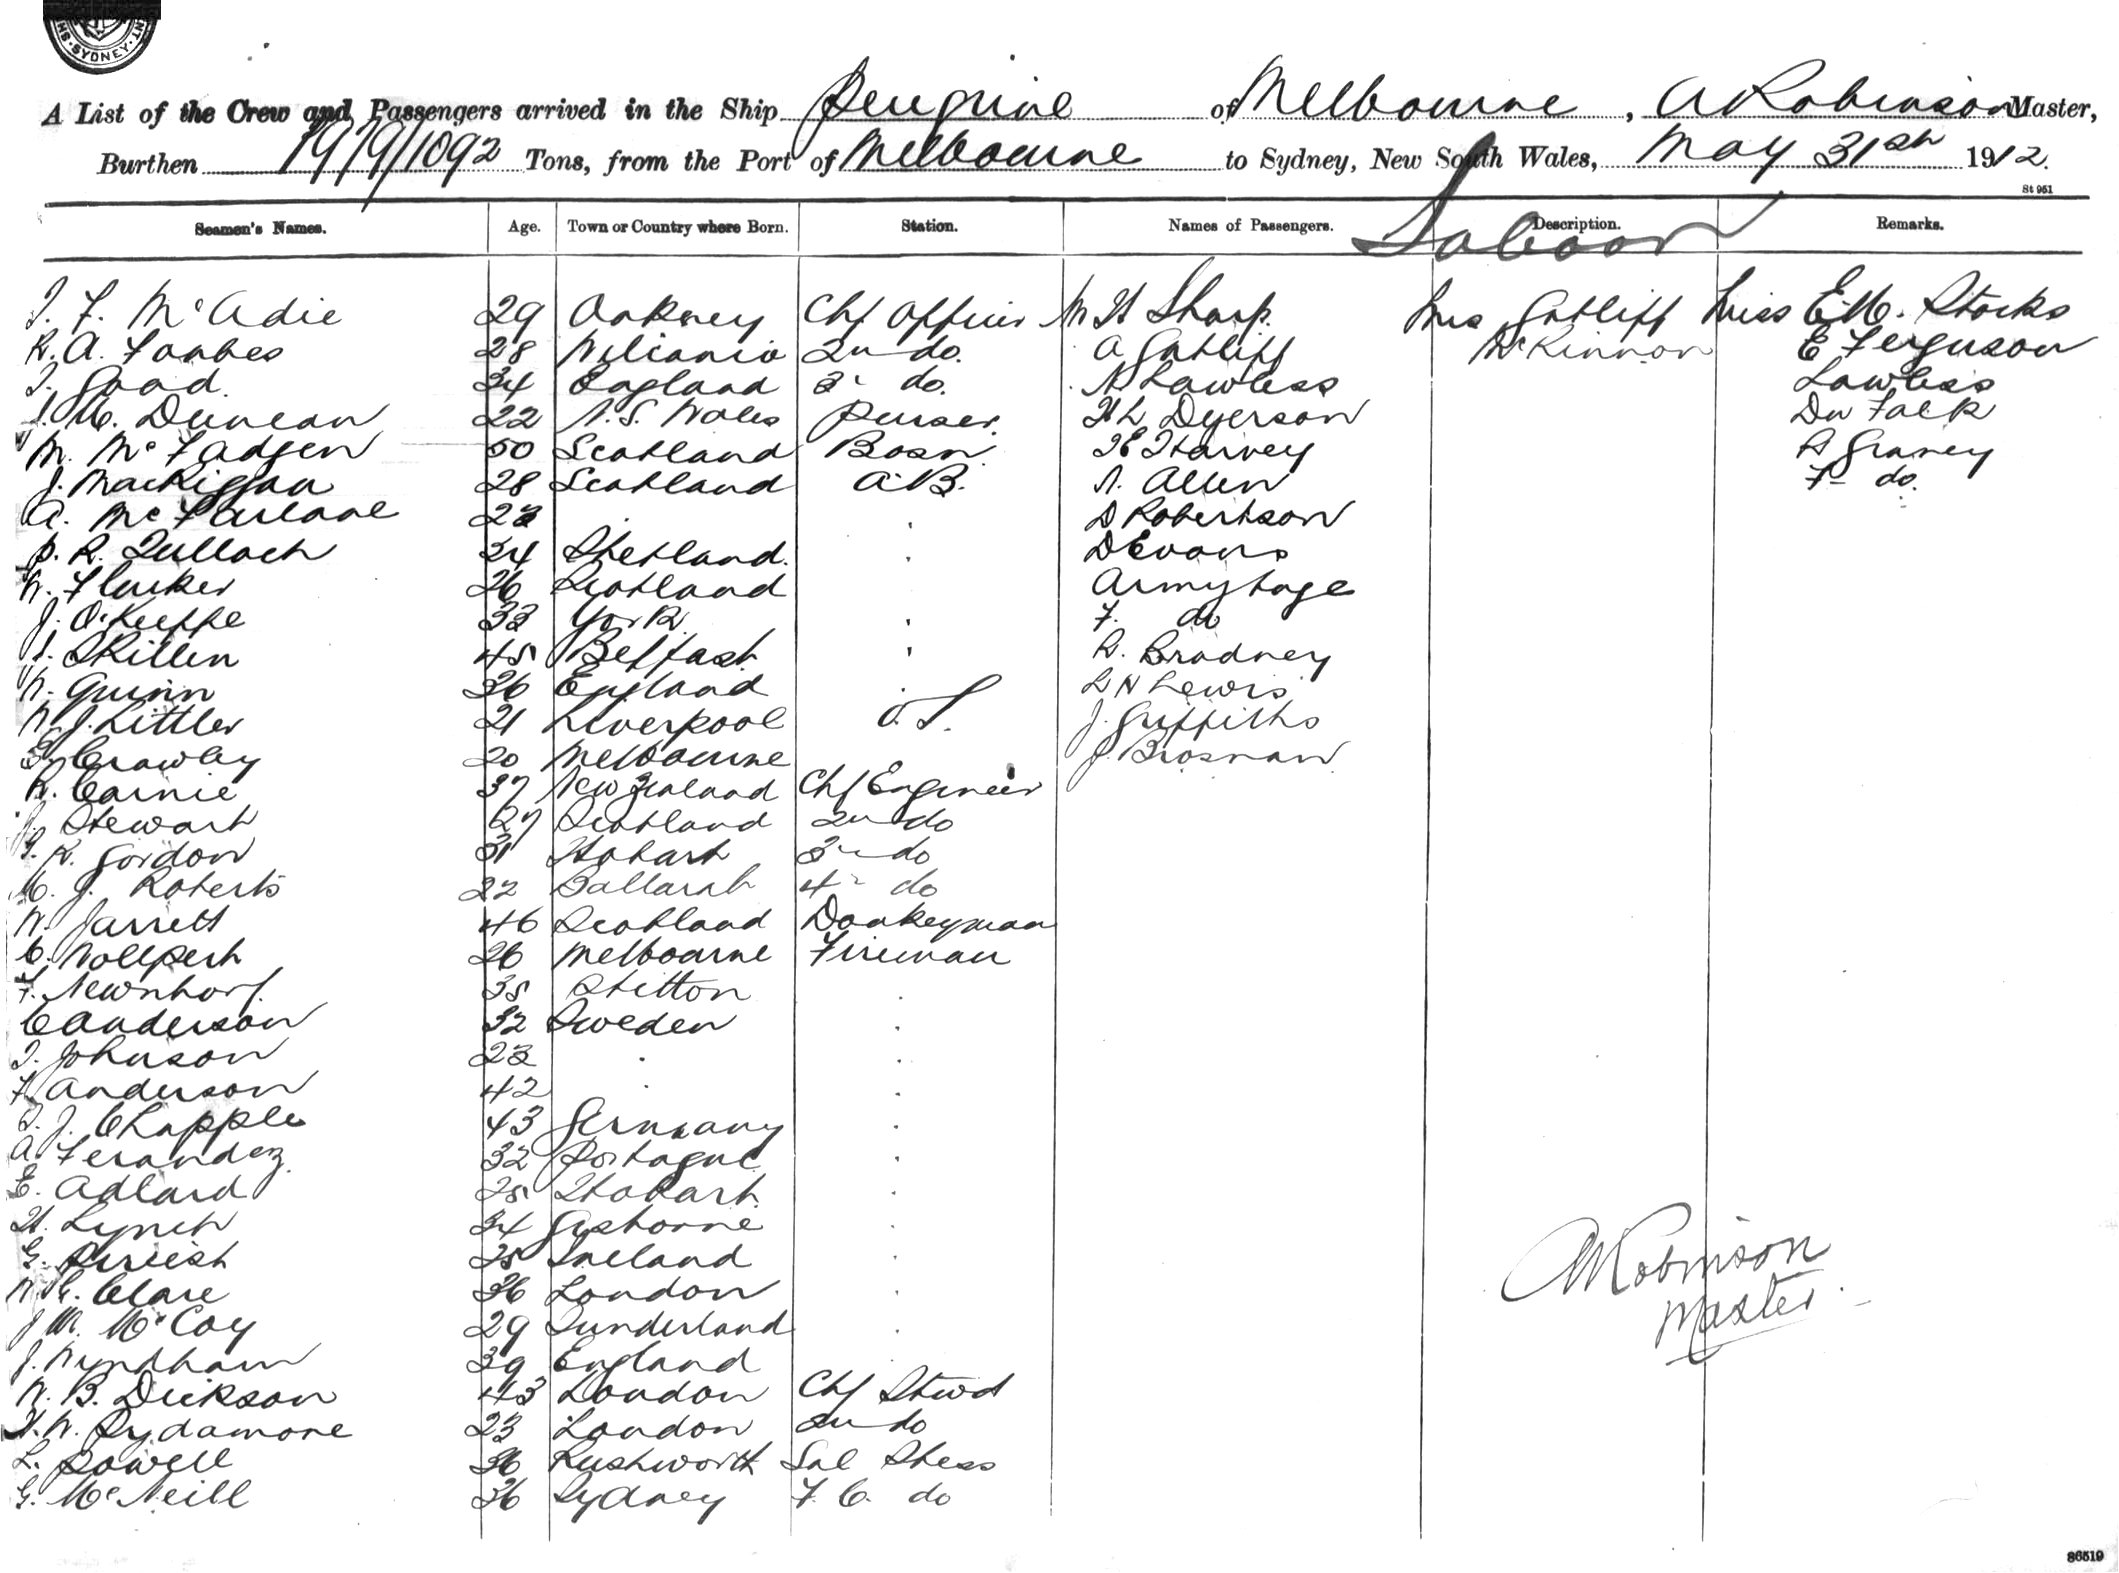 SYDNEY
A List of the Crew and Passengers arrived in the Ship Peregrine of Melbourne, A Robinson Master,
Burthen 1979/1092 Tons, from the Port of Melbourne to Sydney, New South Wales, May 31st 1912.
St 951
Saloon
Seamen's Names. Age. Town or Country where Born. Station. Names of Passengers. Description. Remarks.
J. F. McAdie 29 Orkney Chf Officer Mr H Sharp. Mrs Gatliff Miss E. M. Stocks
R. A. Forbes 28 2nd do. A Gatliff McKinnon E Ferguson
J. Good 34 England 3rd do. N Lawless Lawless
J. M. Duncan 22 N.S. Wales Purser H L Dyerson Du Falk
M. McFadgen 50 Scotland Bosn H E Harvey A Graney
J. MacKiggan 28 Scotland A.B. A. Allen F do.
A. McFarlane 23 D Robertson
P. R. Tulloch 34 Shetland. D Evans
W. Flucker 26 Scotland Armytage
J. O'Keeffe 33 York F. do
J. Skillen 45 Belfast R. Bradney
W. Quinn 36 England L N Lewis
W. J. Littler 21 Liverpool O.S. J. Griffiths
E. Crawley 20 Melbourne J. Brosnan
R. Cairnie 37 New Zealand Chf Engineer
J. Stewart 27 Scotland 2nd do
G. R. Gordon 31 Hobart 3rd do
M. J. Roberts 22 Ballarat 4th do
W. Jarrett 46 Scotland Donkeyman
C. Wollpert 26 Melbourne Fireman
F. Newnhorf. 35 Stetton
C Anderson 32 Sweden
J. Johnson 23
F. Anderson 42
J. J. Chapple 43 Germany
A. Ferandez 32 Portugue
E. Adlard 25 Hobart
H. Lynch 34 Gisborne
G. 25 Ireland
W. G. Clare 36 London
J. M. McCoy 29 Sunderland
J. Wyndham 39 England
W. B. Dickson 43 London Chf Stwd
H. W. Sydamore 23 London 2nd do
L. Powell 36 Rushworth Sal Stess
G. McNeill 36 Sydney F. C. do
A Robinson
Master
86519